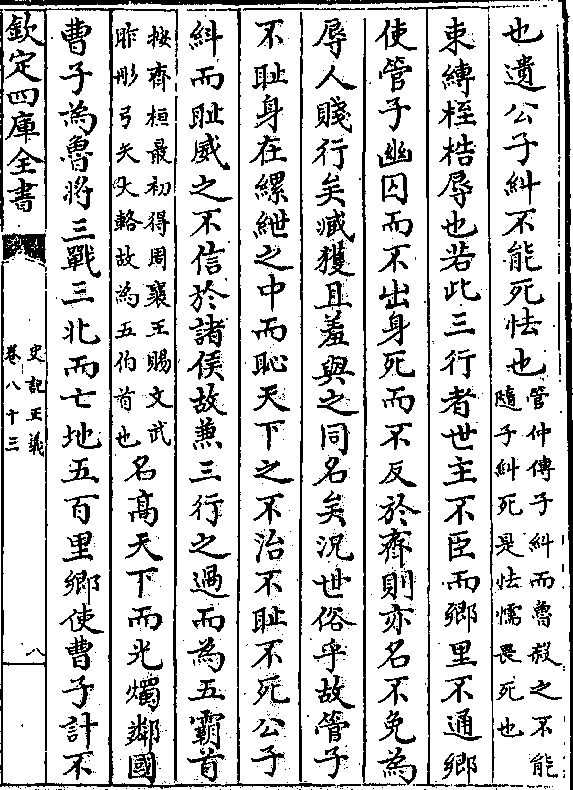 也遺公子糾不能死怯也管仲傅子糾而魯殺之不能
隨子糾死是怯懦畏死也
束縛桎梏辱也若此三行者世主不臣而鄉里不通鄉
使管子幽囚而不出身死而不反於齊則亦名不免為
辱人賤行矣臧獲且羞與之同名矣況世俗乎故管子
不耻身在縲紲之中而恥天下之不治不耻不死公子
糾而耻威之不信於諸侯故兼三行之過而為五霸首
按齊桓最初得周襄王賜文武
胙彤弓矢大輅故為五伯首也名高天下而光燭鄰國
曹子為魯將三戰三北而亡地五百里鄉使曹子計不
欽定四庫全書
史記正義
卷八十三
八